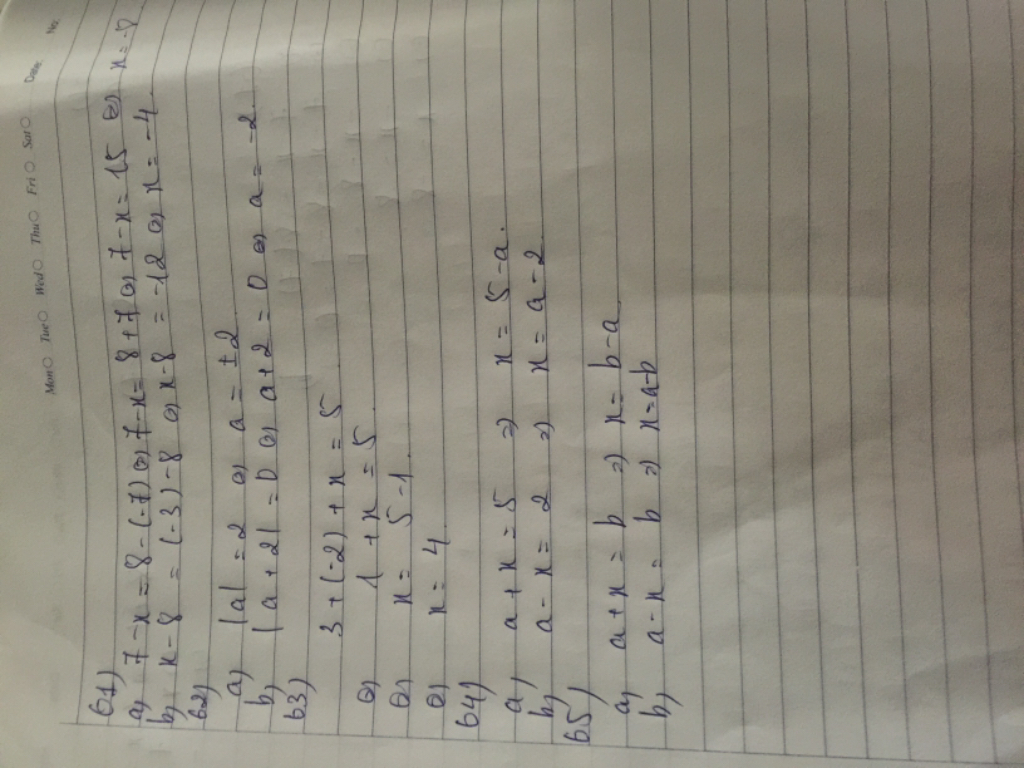 No.
Date.
Mon Tue Wed Thu Fri Sat
61)
a) 7 - x = 8 - (-7) ⇔ 7 - x = 8 + 7 ⇔ 7 - x = 15 ⇔ x = -8
b) x - 8 = (-3) - 8 ⇔ x - 8 = -12 ⇔ x = -4
62)
a) |a| = 2 ⇔ a = ±2
b) |a + 2| = 0 ⇔ a + 2 = 0 ⇔ a = -2
63)
3 + (-2) + x = 5
⇔ 1 + x = 5
⇔ x = 5 - 1
⇔ x = 4
64)
a) a + x = 5 ⇒ x = 5 - a.
b) a - x = 2 ⇒ x = a - 2
65)
a) a + x = b ⇒ x = b - a
b) a - x = b ⇒ x = a - b